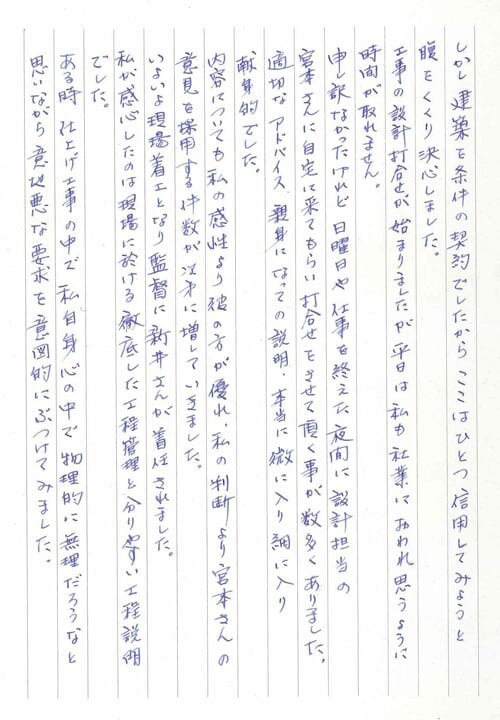 しかし建築を条件の契約でしたから ここはひとつ 信用してみようと
腹をくくり決心しました。
工事の設計打合せが始まりましたが平日は私も社業におわれ思うように
時間が取れません。
申し訳なかったけれど 日曜日や仕事を終えた夜間に設計担当の
宮本さんに自宅に来てもらい打合せをさせて頂く事が数多くありました。
適切なアドバイス 親身になっての説明・本当に微に入り細に入り
献身的でした。
内容についても私の感性より彼の方が優れ、私の判断より宮本さんの
意見を採用する件数が次第に増していきました。
いよいよ現場着工となり監督に新井さんが着任されました。
私が感心したのは現場に於ける徹底した工程管理と分りやすい工程説明
でした。
ある時 仕上げ工事の中で 私自身心の中で物理的に無理だろうなと
思いながら意地悪な要求を意図的にぶつけてみました。